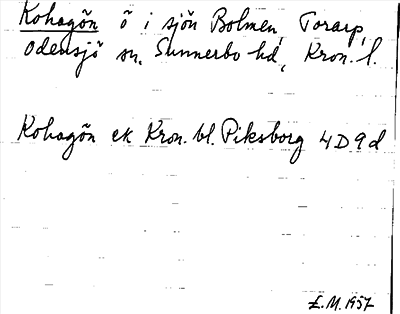 Kohagön ö i sjön Bolmen, Torarp,
Odensjö sn, Sunnerbo hd, Kron. l.
Kohagön ek Kron. bl. Piksborg 4D9d
E.M. 1957